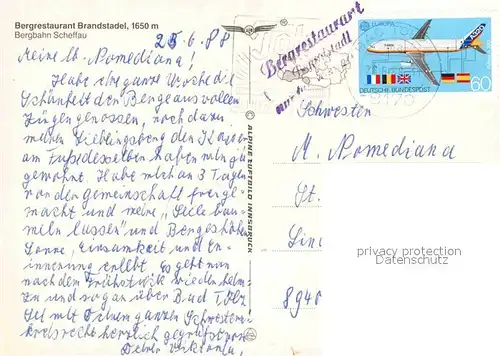 Bergrestaurant Brandstadel, 1650 m
Bergbahn Scheffau
25.6.88
Meine lb. Nomediana!
Habe die ganze Woche die
Schönheit den Berge aus vollen
Zügen genossen, noch dazu
meinen Lieblingsberg den
am Fuße desselben haben wir
gewohnt. Habe mich an 3 Tagen
von der Gemeinschaft freige-
macht und meine „Seele bau-
meln lassen" und Bergeshöhe
Sonne, Einsamkeit und Er-
innerung erlebt. So geht man
nach dem Frühstück wieder heim-
zu und sogar über Bad Tölz.
Sei mit Deinem ganzen Schwestern-
kreis recht herzlich gegrüßt von
Deiner
ALPINE LUFTBILD INNSBRUCK
Bergrestaurant
EUROPA
A320
DEUTSCHE BUNDESPOST
60
Schwester
M. Nomediana
St.
privacy protection
Datenschutz